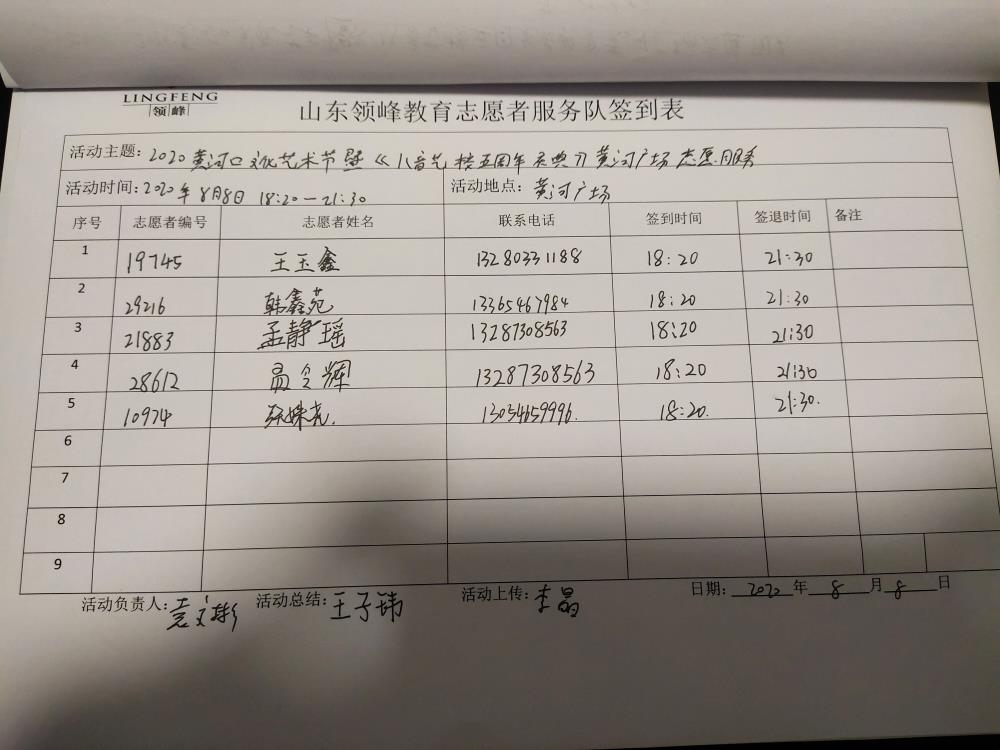 LINGFENG
领峰
山东领峰教育志愿者服务队签到表
活动主题: 2020黄河口文化艺术节暨《八音艺 五周年庆典》黄河广场志愿服务
活动时间: 2020年8月8日 18:20—21:30 活动地点: 黄河广场
序号 志愿者编号 志愿者姓名 联系电话 签到时间 签退时间 备注
1 19745 王玉鑫 13280331188 18:20 21:30
2 29216 韩鑫苑 13365467984 18:20 21:30
3 21883 孟静瑶 13287308563 18:20 21:30
4 28612 辉 13287308563 18:20 21:30
5 10974 13054659996. 18:20. 21:30.
6
7
8
9
活动负责人: 袁文彬 活动总结: 王子玮 活动上传: 李晶 日期: 2020 年 8 月 8 日